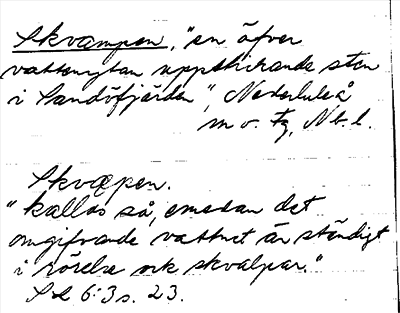 Skvampen, "en öfver
vattenytan uppstickande sten
i Sandöfjärden", Nederluleå
m v. Fz, Nb. l.
Skvæpen.
"kallas så, emedan det
omgifvande vattnet är ständigt
i rörelse ock skvalpar."
Sol 6:3 s. 23.